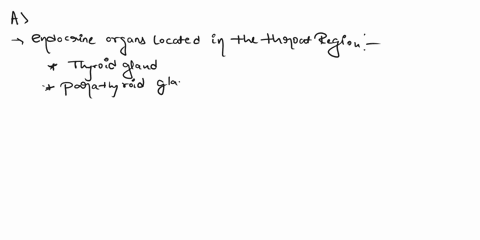 A>
→ Endocrine organs located in the throat Region:-
* Thyroid gland
* Parathyroid gla